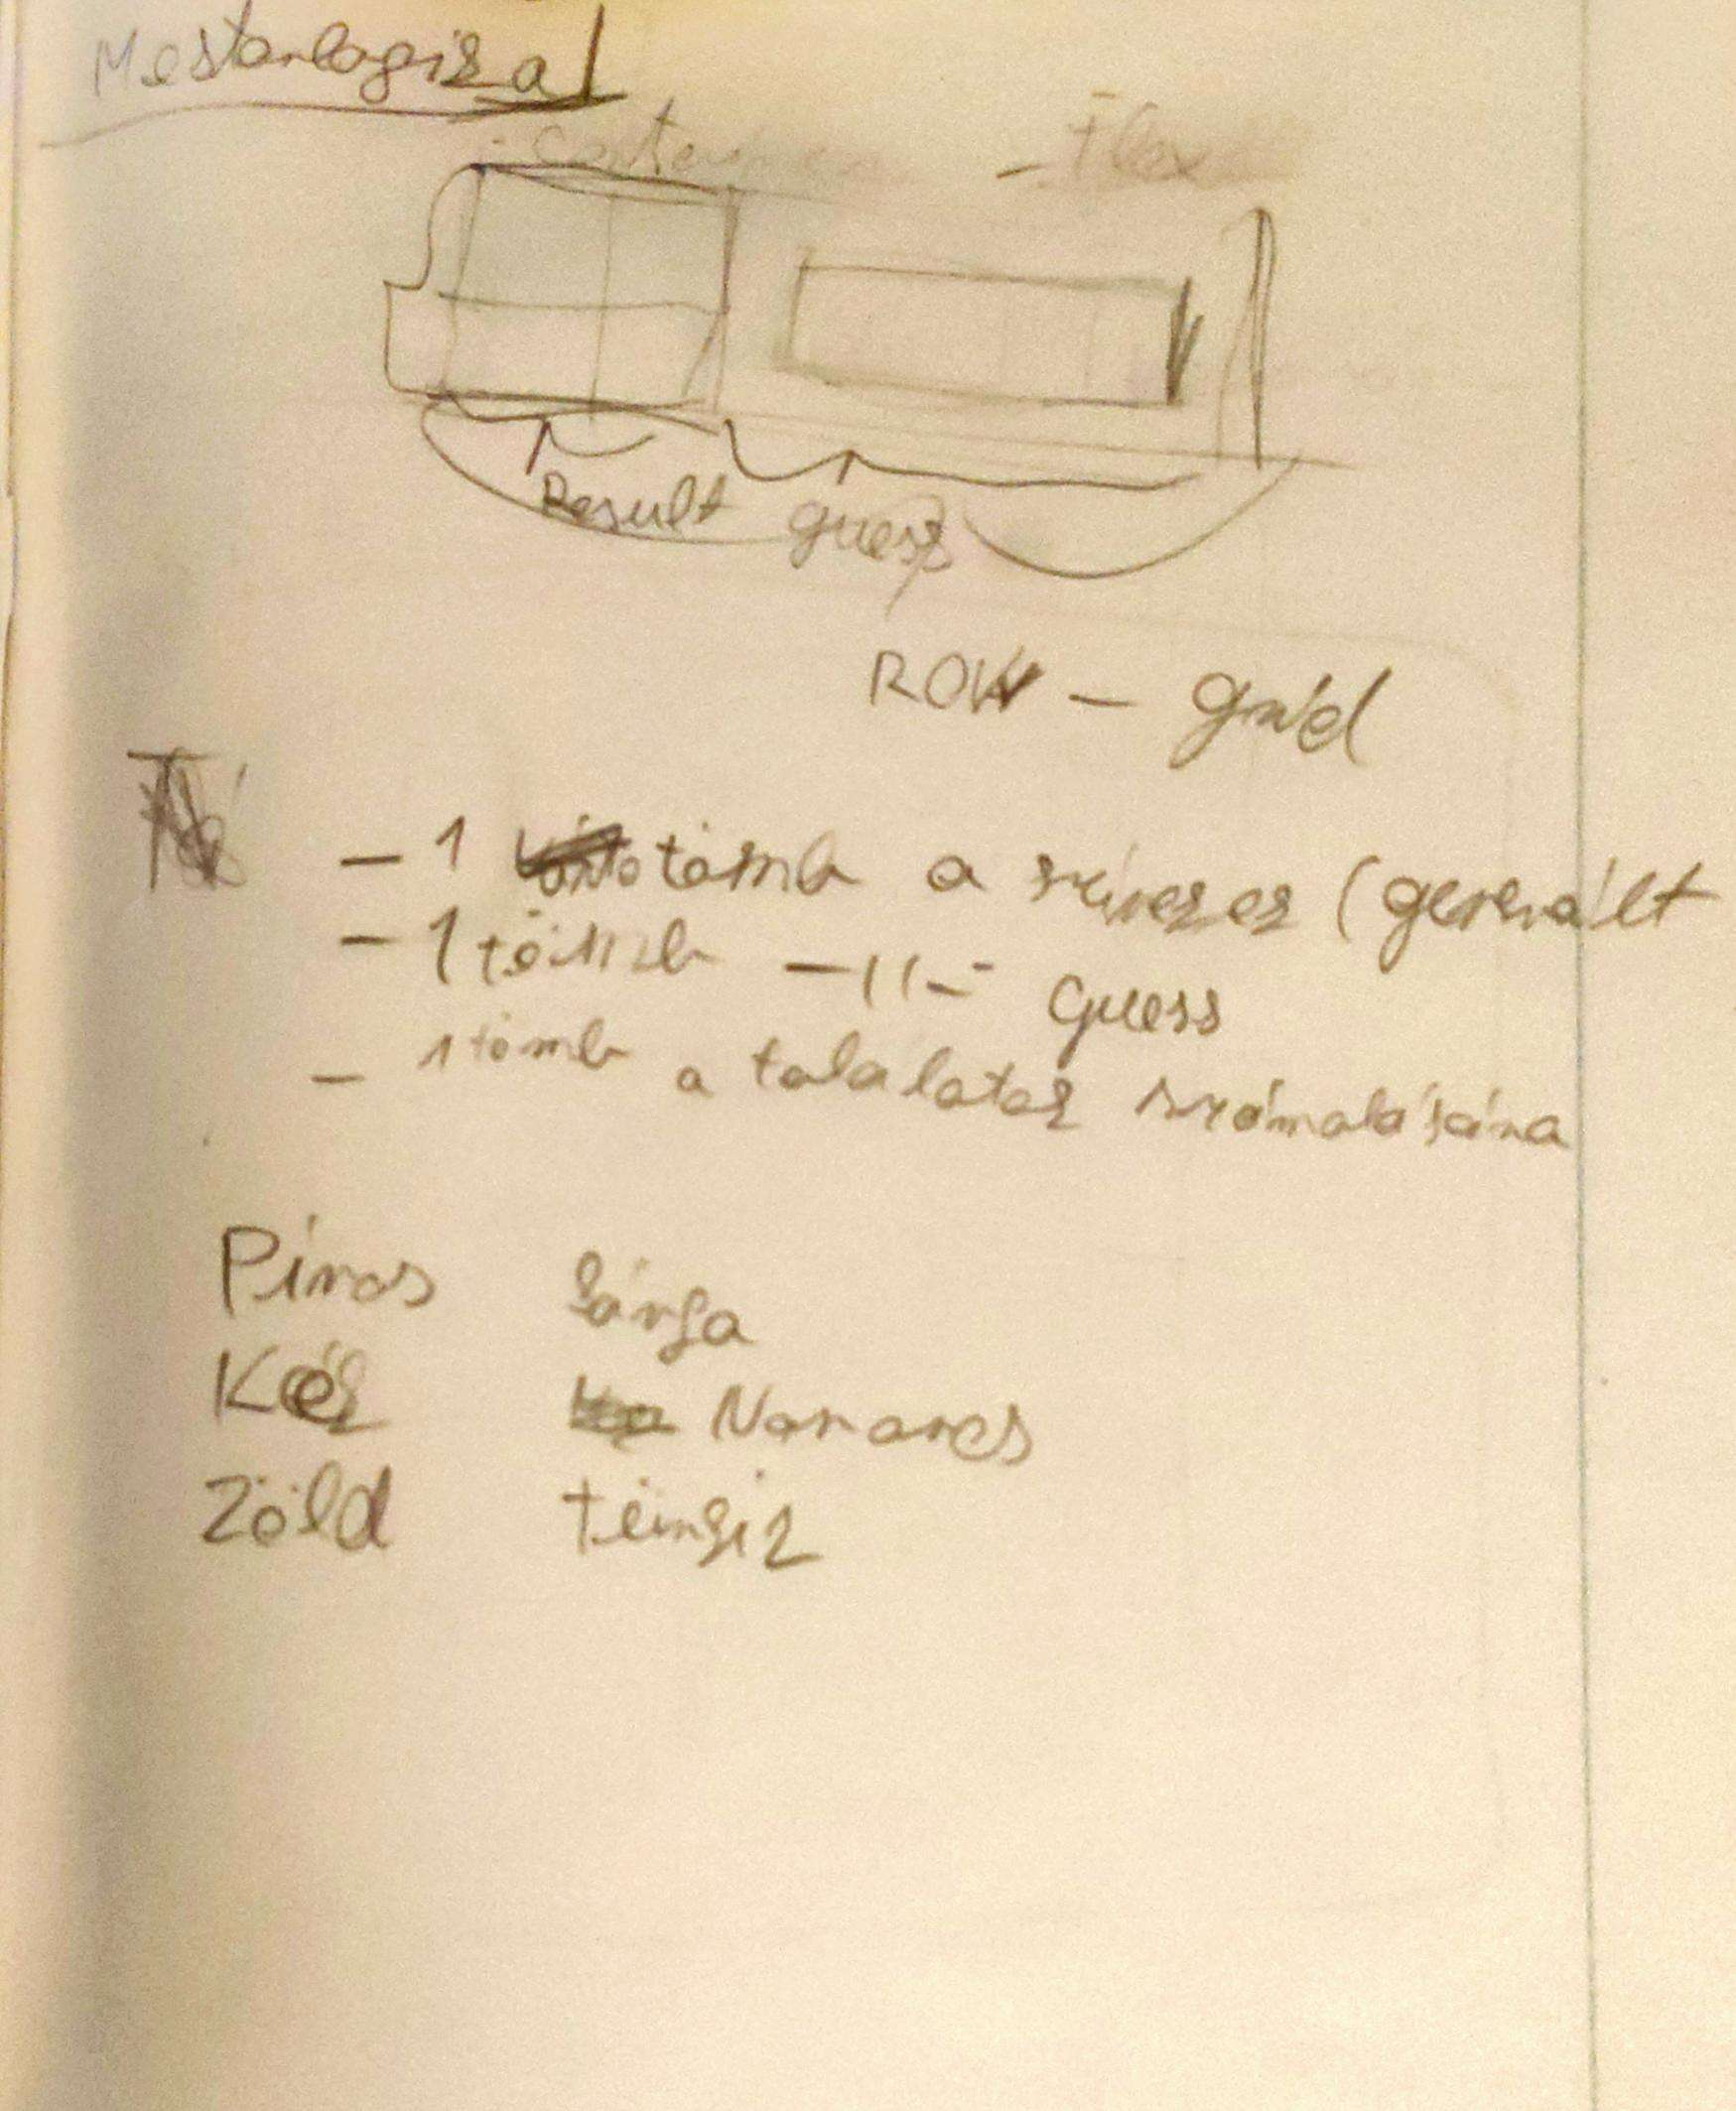 Mesterlogika
- Flex
Result guess
ROW - grid
- 1 tömb a színeknek (generált
- 1 tömb -11- Guess
- 1 tömb a találatok számolására
Piros Sárga
Kék Narancs
Zöld Türkiz